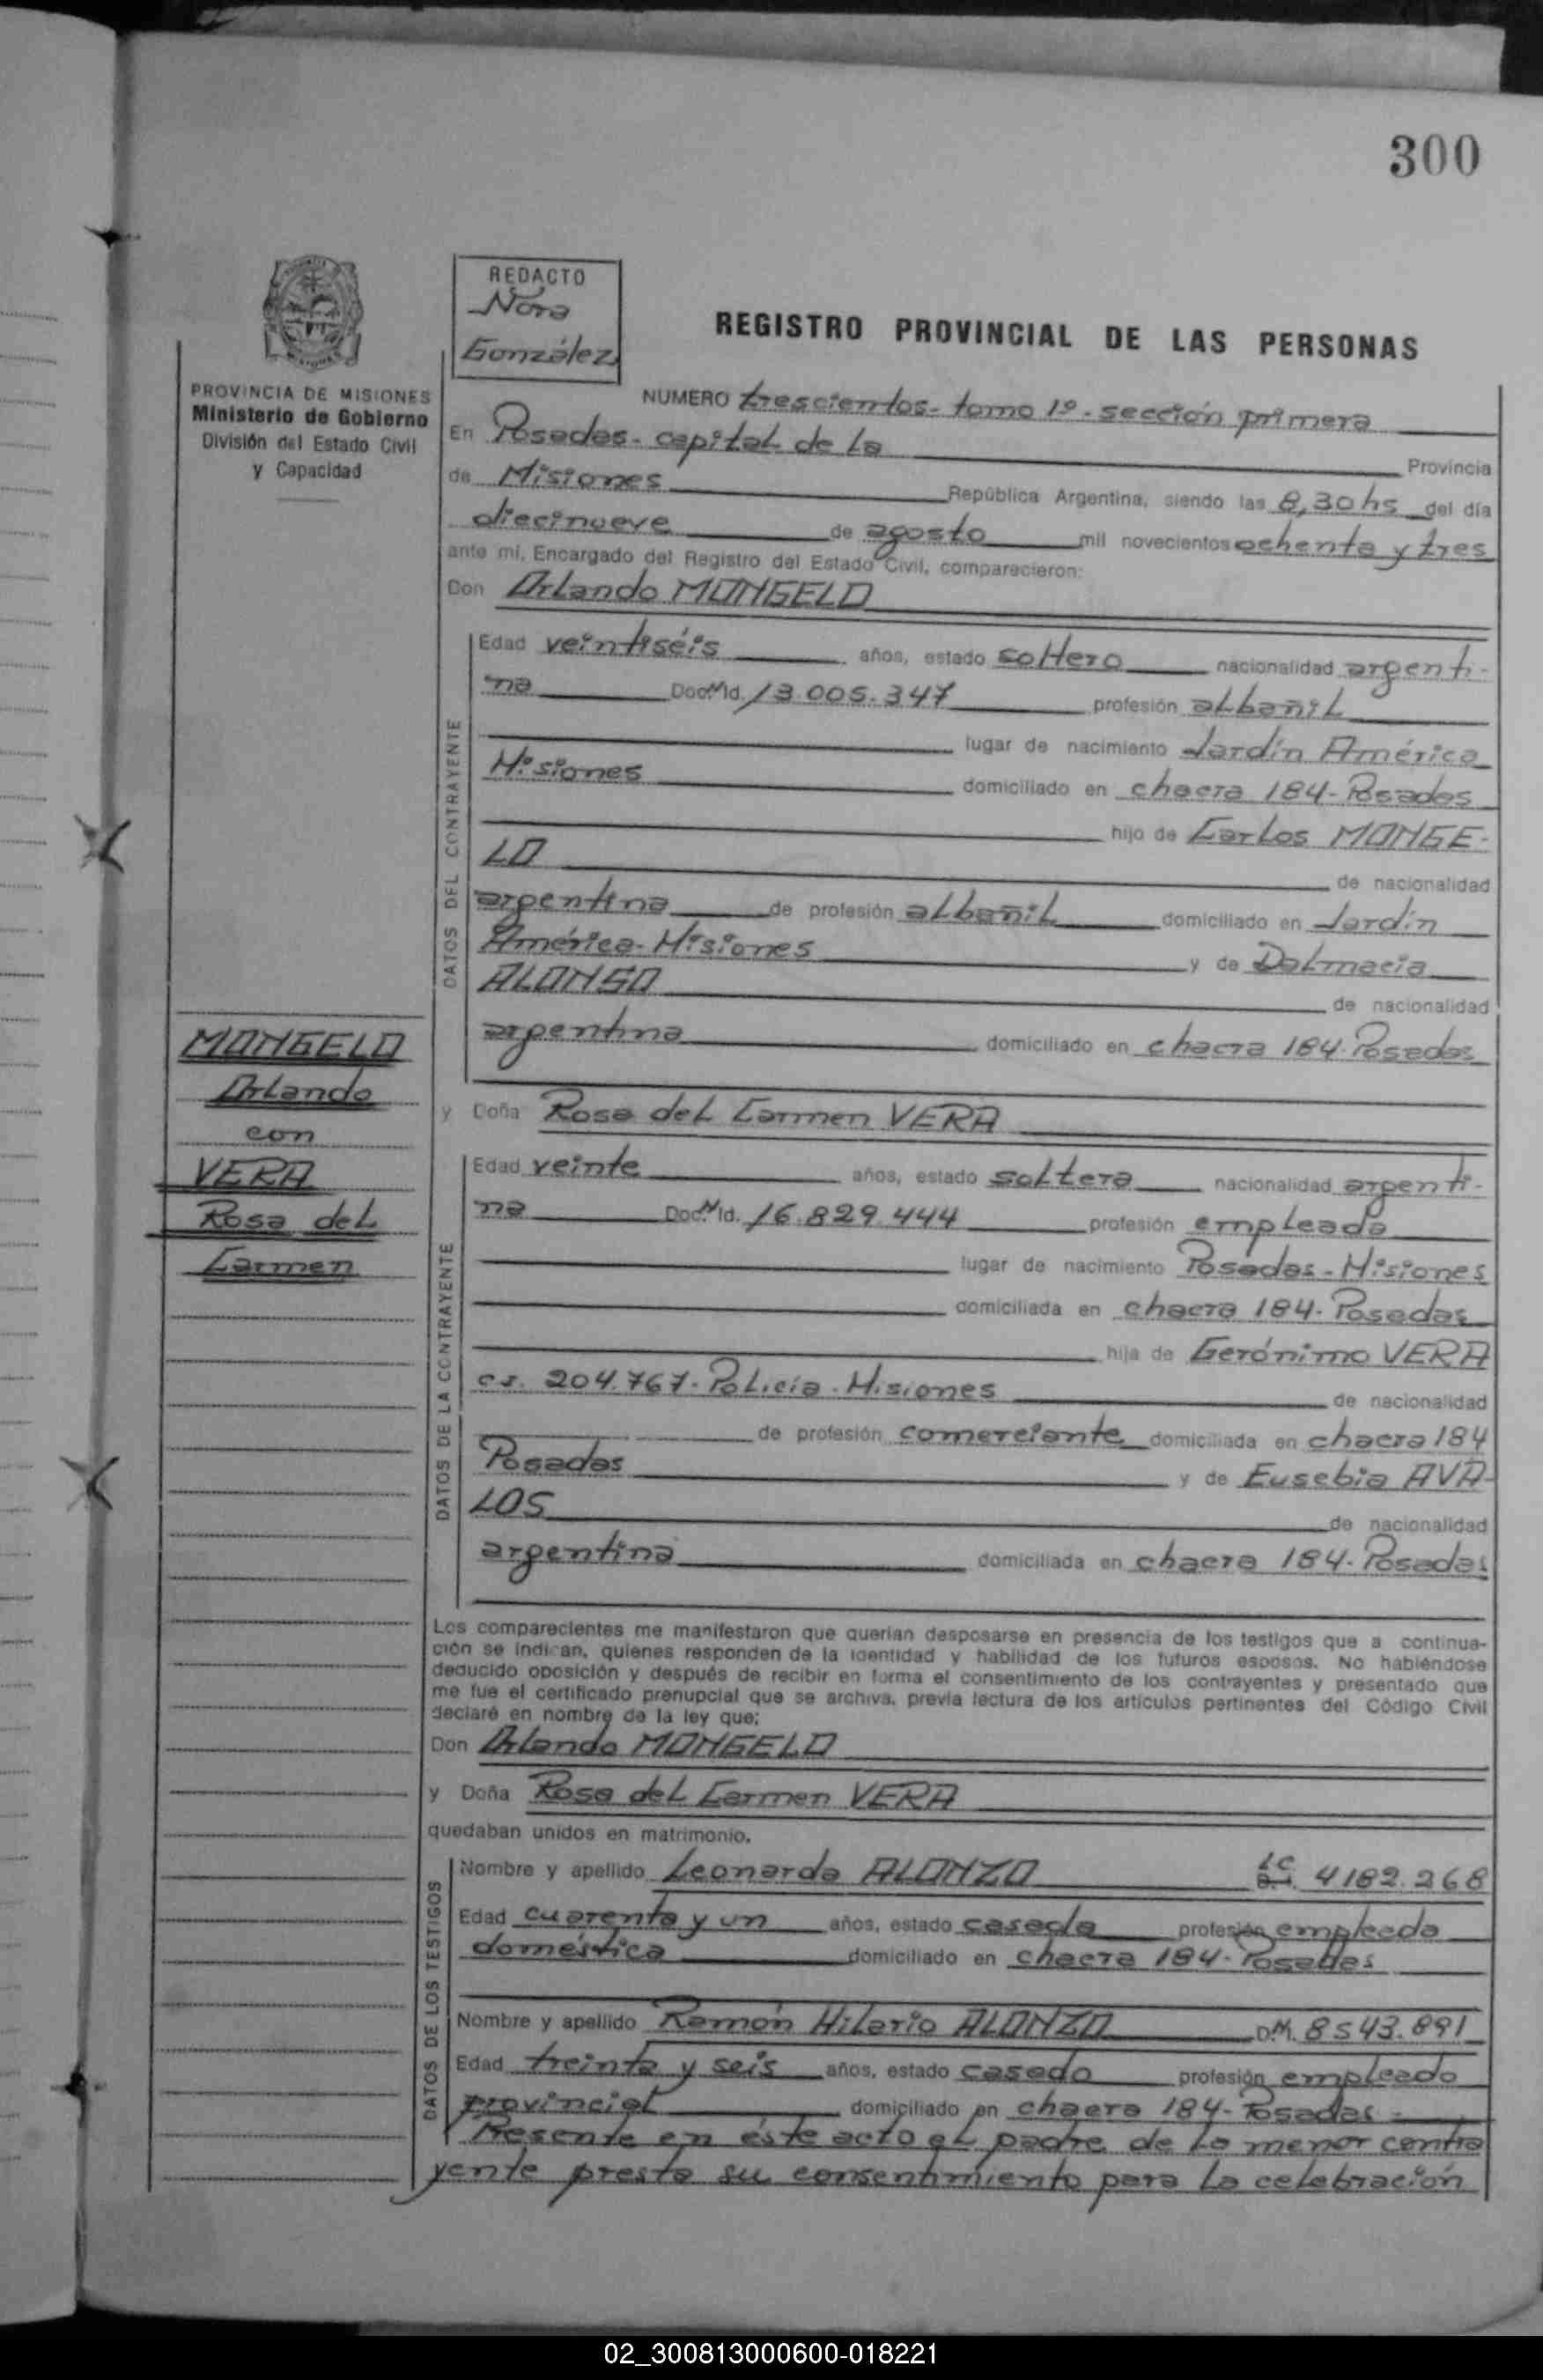 300
REDACTO
Nora
González
REGISTRO PROVINCIAL DE LAS PERSONAS
PROVINCIA DE MISIONES
Ministerio de Gobierno
División del Estado Civil
y Capacidad
NUMERO trescientos- tomo 1º- sección primera
En Posadas- capital de la Provincia
de Misiones República Argentina, siendo las 8,30 hs del día
diecinueve de agosto mil novecientos ochenta y tres
ante mí, Encargado del Registro del Estado Civil, comparecieron:
Don Orlando MONGELO
DATOS DEL CONTRAYENTE
Edad veintiséis años, estado soltero nacionalidad argenti-
na Doc. Id. 13.005.347 profesión albañil
lugar de nacimiento Jardín América
Misiones domiciliado en chacra 184- Posadas
hijo de Carlos MONGE-
LO de nacionalidad
argentina de profesión albañil domiciliado en Jardín
América- Misiones y de Dalmacia
ALONSO de nacionalidad
argentina domiciliado en chacra 184- Posadas
MONGELO
Orlando
con
VERA
Rosa del
Carmen
y Doña Rosa del Carmen VERA
DATOS DE LA CONTRAYENTE
Edad veinte años, estado soltera nacionalidad argenti-
na Doc. Id. 16.829.444 profesión empleada
lugar de nacimiento Posadas- Misiones
domiciliada en chacra 184- Posadas
hija de Gerónimo VERA
c.I. 204.767- Policía- Misiones de nacionalidad
de profesión comerciante domiciliada en chacra 184
Posadas y de Eusebia AVA-
LOS de nacionalidad
argentina domiciliada en chacra 184- Posadas
Los comparecientes me manifestaron que querían desposarse en presencia de los testigos que a continua-
ción se indican, quienes responden de la identidad y habilidad de los futuros esposos. No habiéndose
deducido oposición y después de recibir en forma el consentimiento de los contrayentes y presentado que
me fue el certificado prenupcial que se archiva, previa lectura de los artículos pertinentes del Código Civil
declaré en nombre de la ley que:
Don Orlando MONGELO
y Doña Rosa del Carmen VERA
quedaban unidos en matrimonio.
DATOS DE LOS TESTIGOS
Nombre y apellido Leonarda ALONZO LC 4182.268
Edad cuarenta y un años, estado casada profesión empleada
doméstica domiciliado en chacra 184- Posadas
Nombre y apellido Ramón Hilario ALONZO D.M. 8543.891
Edad treinta y seis años, estado casado profesión empleado
provincial domiciliado en chacra 184- Posadas-
Presente en éste acto el padre de la menor contra
yente presta su consentimiento para la celebración
02_300813000600-018221